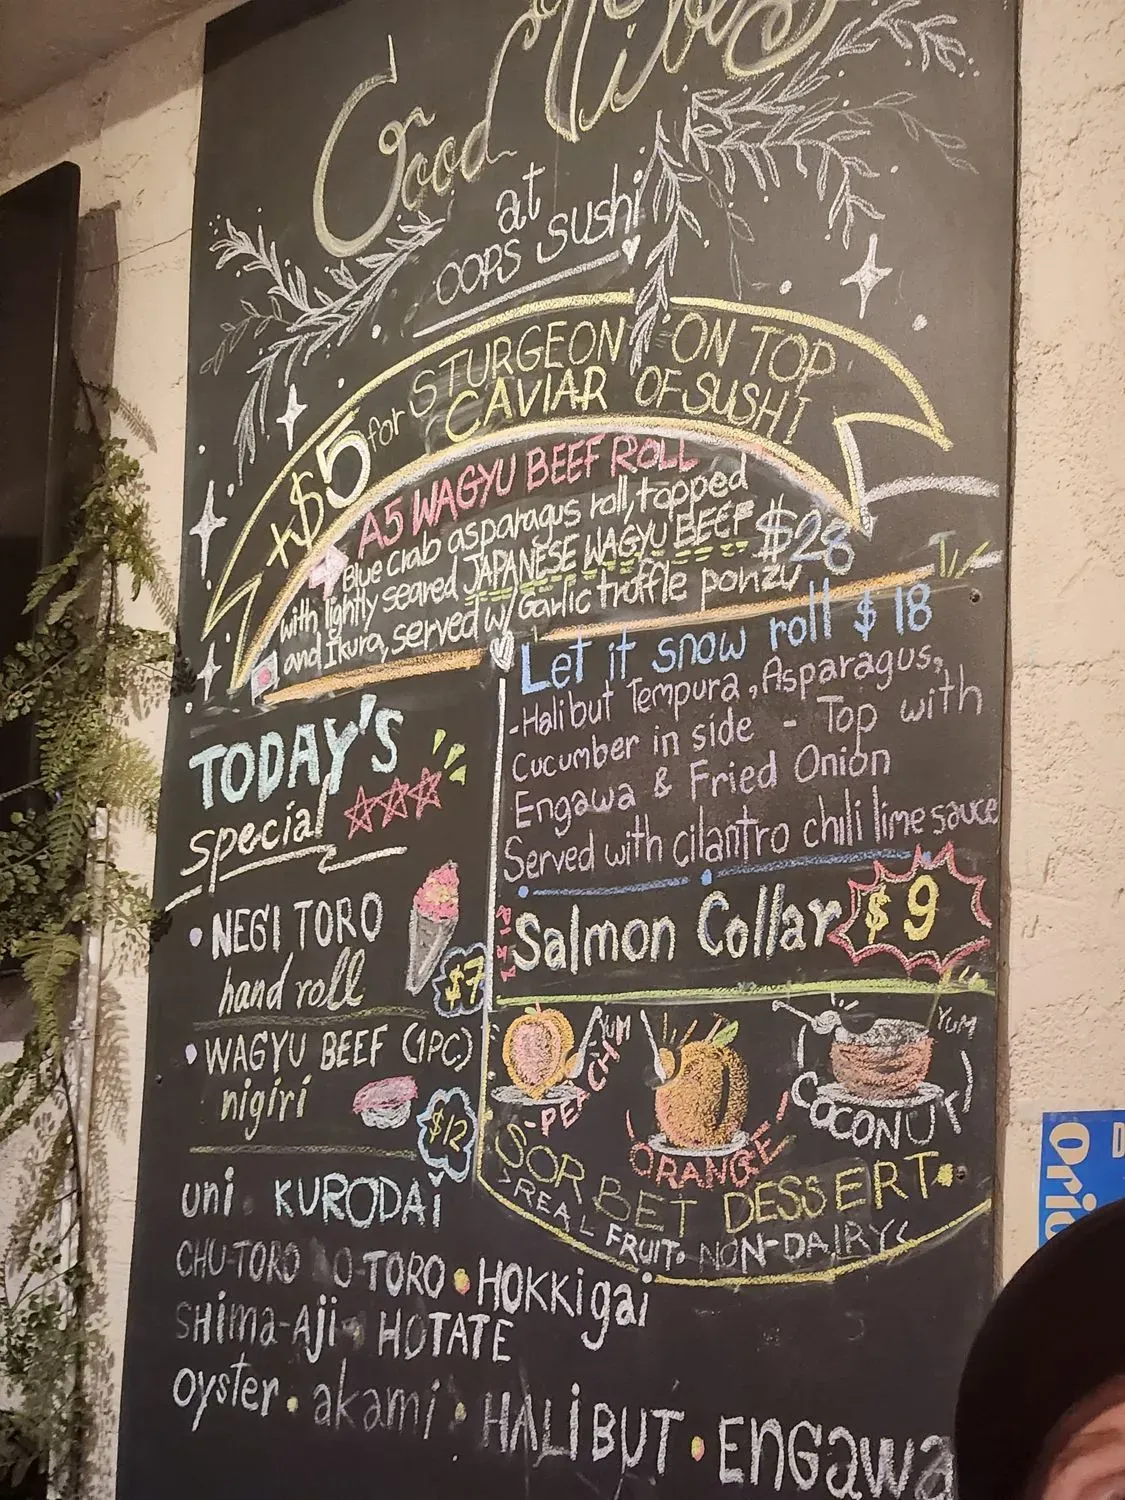 Good Vibes
at
OOPS SUShi
+$5 for STURGEON CAVIAR ON TOP OF SUSHI
A5 WAGYU BEEF ROLL
Blue Crab asparagus roll, topped
with lightly seared JAPANESE WAGYU BEEF $28
and Ikura, served w/ Garlic truffle ponzu
Let it snow roll $18
-Halibut Tempura, Asparagus,
Cucumber in side - Top with
Engawa & Fried Onion
Served with cilantro chili lime sauce
TODAY'S
special
• NEGI TORO
hand roll
$7
• WAGYU BEEF (1PC)
nigiri
$12
Salmon Collar $9
YUM
PEACH
ORANGE
YUM
COCONUT
SORBET DESSERT
REAL FRUIT • NON-DAIRY
uni • KURODAI
CHU-TORO O-TORO • HOKKigai
SHima-Aji • HOTATE
oyster • akami • HALiBUT • ENGawa